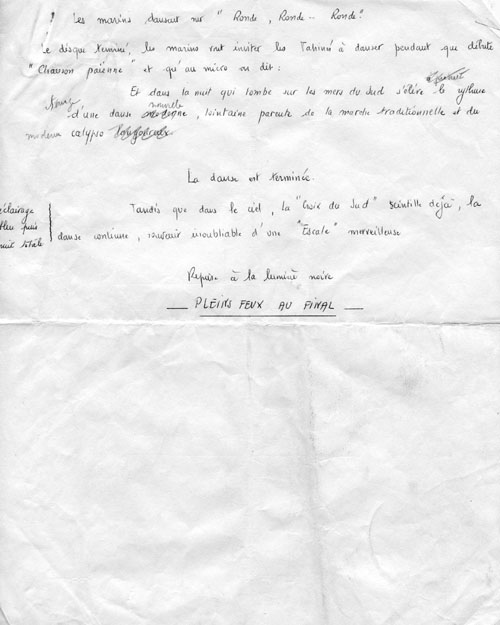 Les marins dansent sur "Ronde, Ronde -- Ronde".
Le disque terminé, les marins vont inviter les Tahiti à danser pendant que débute
"Chanson païenne" et qu'au micro on dit :
Et dans la nuit qui tombe sur les mers du Sud s'élève le rythme
nouvelle
d'une danse moderne, lointaine parente de la marche traditionnelle et du
moderne calypso langoureux
La danse est terminée.
éclairage Tandis que dans le ciel, la "Croix du Sud" scintille déjà, la
bleu puis danse continue, souvenir inoubliable d'une "Escale" merveilleuse
nuit totale
Reprise à la lumière noire
— PLEINS FEUX AU FINAL —